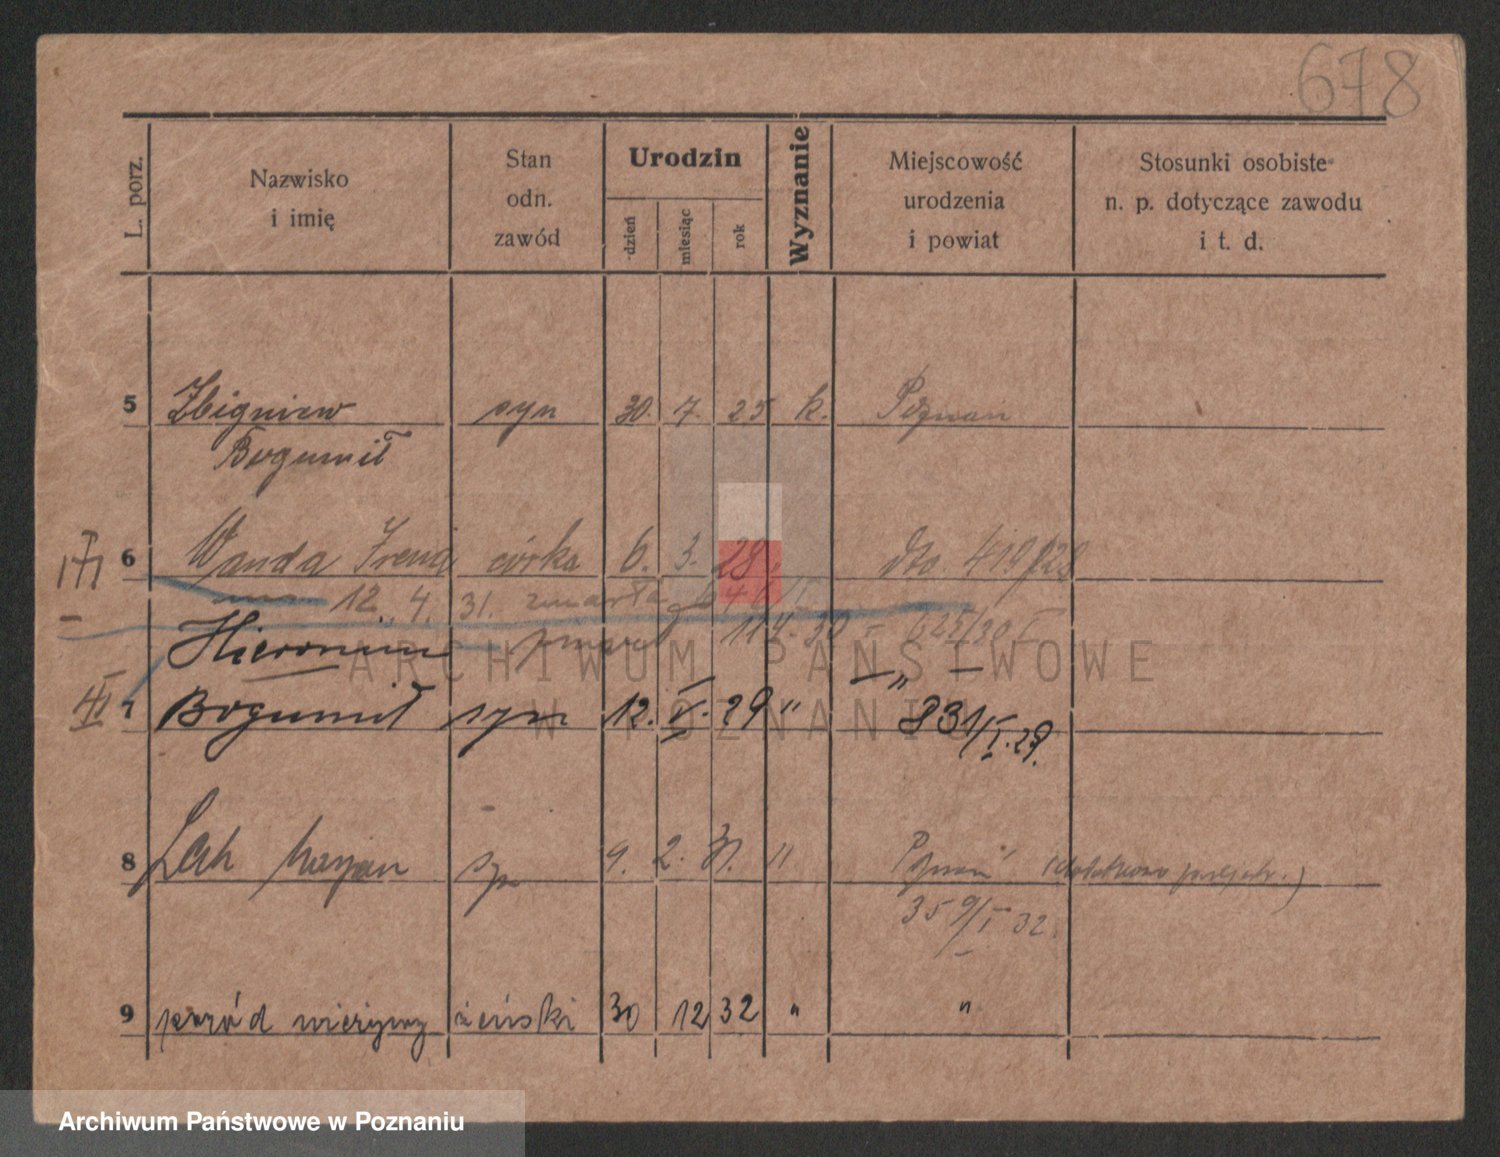 678
L. porz.
Nazwisko
i imię
Stan
odn.
zawód
Urodzin
dzień
miesiąc
rok
Wyznanie
Miejscowość
urodzenia
i powiat
Stosunki osobiste
n. p. dotyczące zawodu
i t. d.
5 Zbigniew syn 30. 7. 25 k. Poznań
Bogumił
6 Wanda Irena córka 6. 3. 28. dto 419/28
12. 4. 31. zmarła
Hieronim zmarł 11 4. 30 = 625/30 I
— " —
7 Bogumił syn 12. V. 29 " 831/I. 29.
8 Lech Marjan syn 9. 2. 31. " Poznań
359/I 32.
9 poród nieżywy żeński 30 12 32 " "
ARCHIWUM PAŃSTWOWE
W POZNANIU
Archiwum Państwowe w Poznaniu